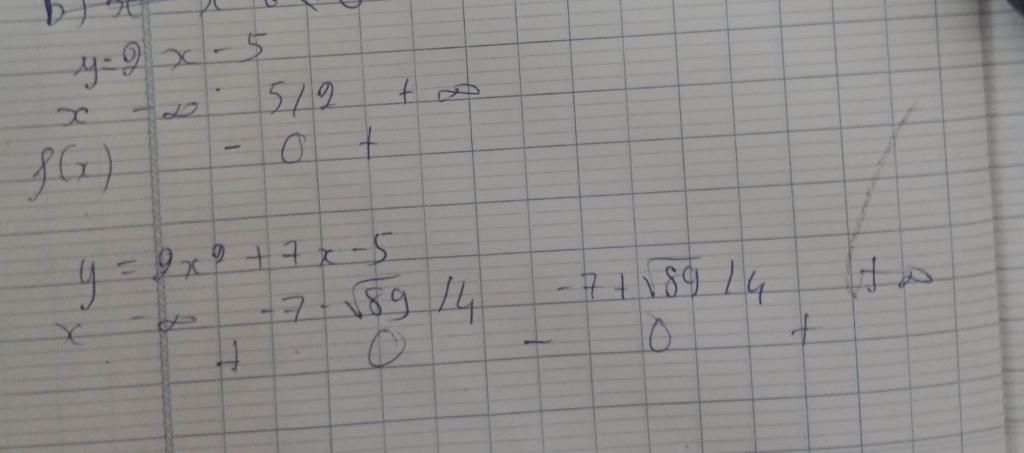 b)
y=2x-5
x -∞ 5/2 +∞
f(x) - 0 +
y = 2x² + 7x - 5
x -∞ -7-√89/4 -7+√89/4 +∞
+ 0 - 0 +